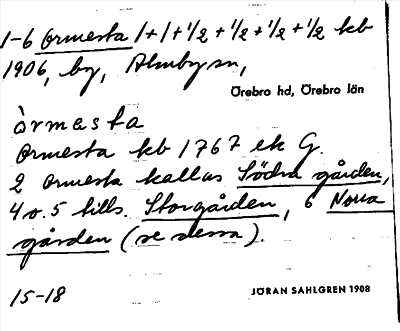 1-6 Ormesta 1+1+1/2+1/2+1/2+1/2 kb
1906, by, Almby sn,
Örebro hd, Örebro län
òrmesta
Ormesta kb 1767 ek G.
2 Ormesta kallas Södra gården,
4 o. 5 tills. Storgården, 6 Norra
gården (se dessa).
15-18
JÖRAN SAHLGREN 1908